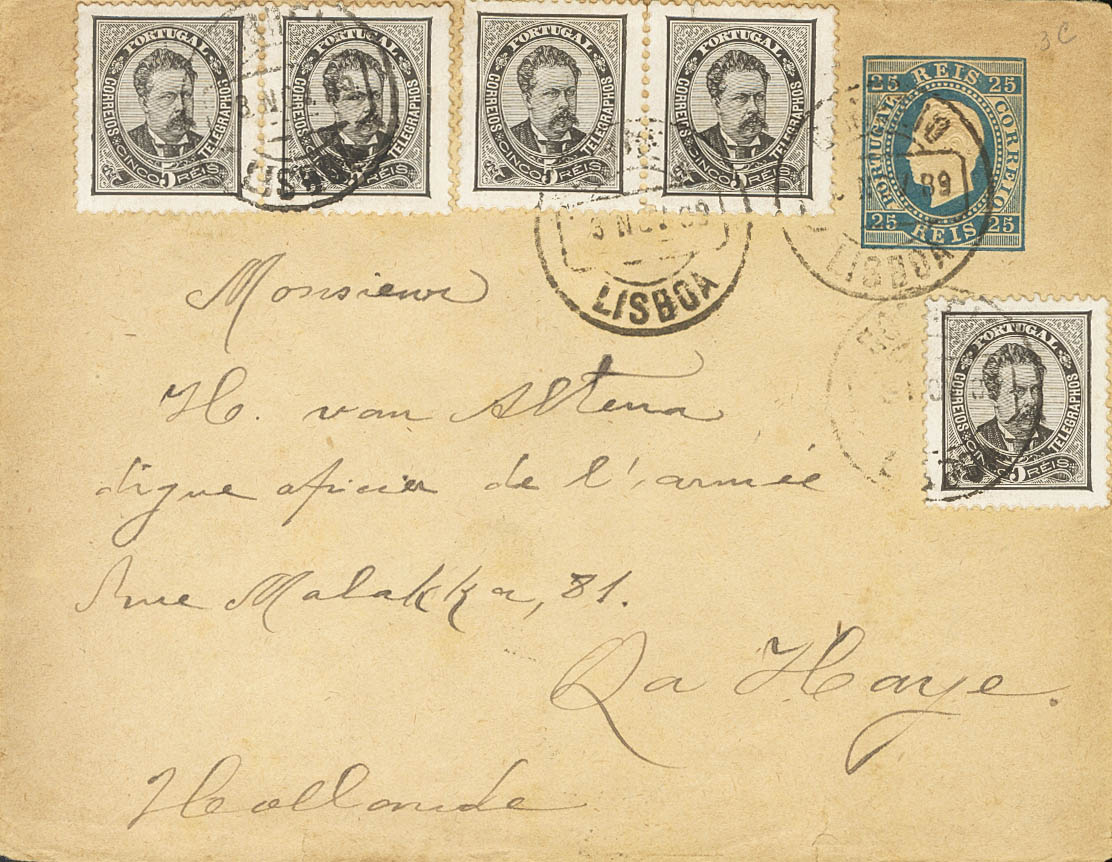 PORTUGAL CORREIOS TELEGRAPHOS CINCO 5 REIS
PORTUGAL CORREIOS TELEGRAPHOS CINCO 5 REIS
PORTUGAL CORREIOS TELEGRAPHOS CINCO 5 REIS
PORTUGAL CORREIOS TELEGRAPHOS CINCO 5 REIS
3C
25 REIS 25
PORTUGAL CORREIO
25 REIS 25
LISBOA
3 NOV 89
LISBOA
89
LISBOA
PORTUGAL CORREIOS TELEGRAPHOS CINCO 5 REIS
Monsieur
H. van Altena
digne oficier de l'armée
Rue Malakka, 81.
La Haye.
Hollande